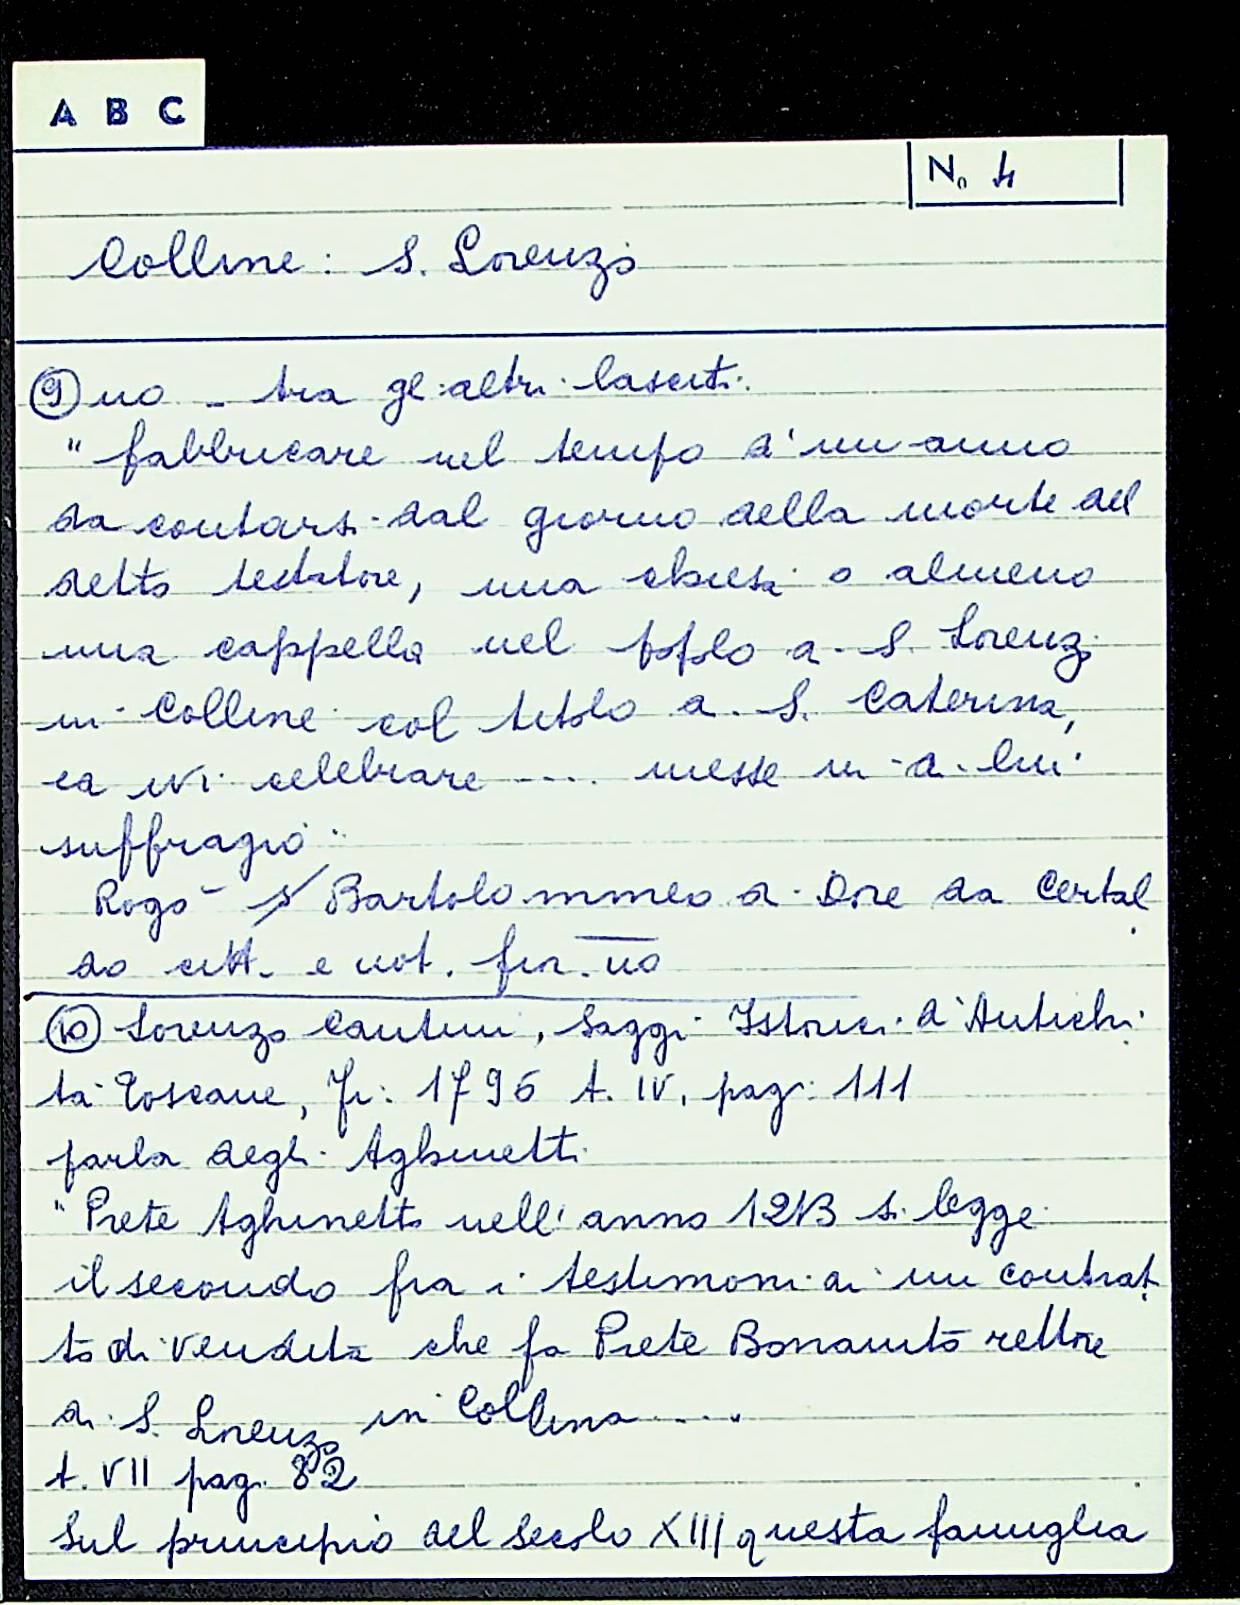 A B C
No 4
Colline: S. Lorenzo
⑨ no - tra gli altri lasciti:
" fabbricare nel tempo d'un anno
da contarsi dal giorno della morte del
detto testatore, una chiesa o almeno
una cappella nel popolo di S. Lorenzo
in Colline col titolo di S. Caterina,
ed ivi celebrare .... messe in di lui
suffragio"
Rogò S/ Bartolommeo di Dore da Certal
do citt. e not. fior.no
⑩ Lorenzo Cantini, Saggi Istorici d'Antichi
tà Toscane, Fi: 1796 t. IV, pag: 111
parla degli Aghinetti
"Prete Aghinetto nell'anno 1213 si legge
il secondo fra i testimoni di un contrat
to di vendita che fa Prete Bonaiuto rettore
di S. Lorenzo in Collina ....
t. VII pag. 82
Sul principio del secolo XIII questa famiglia